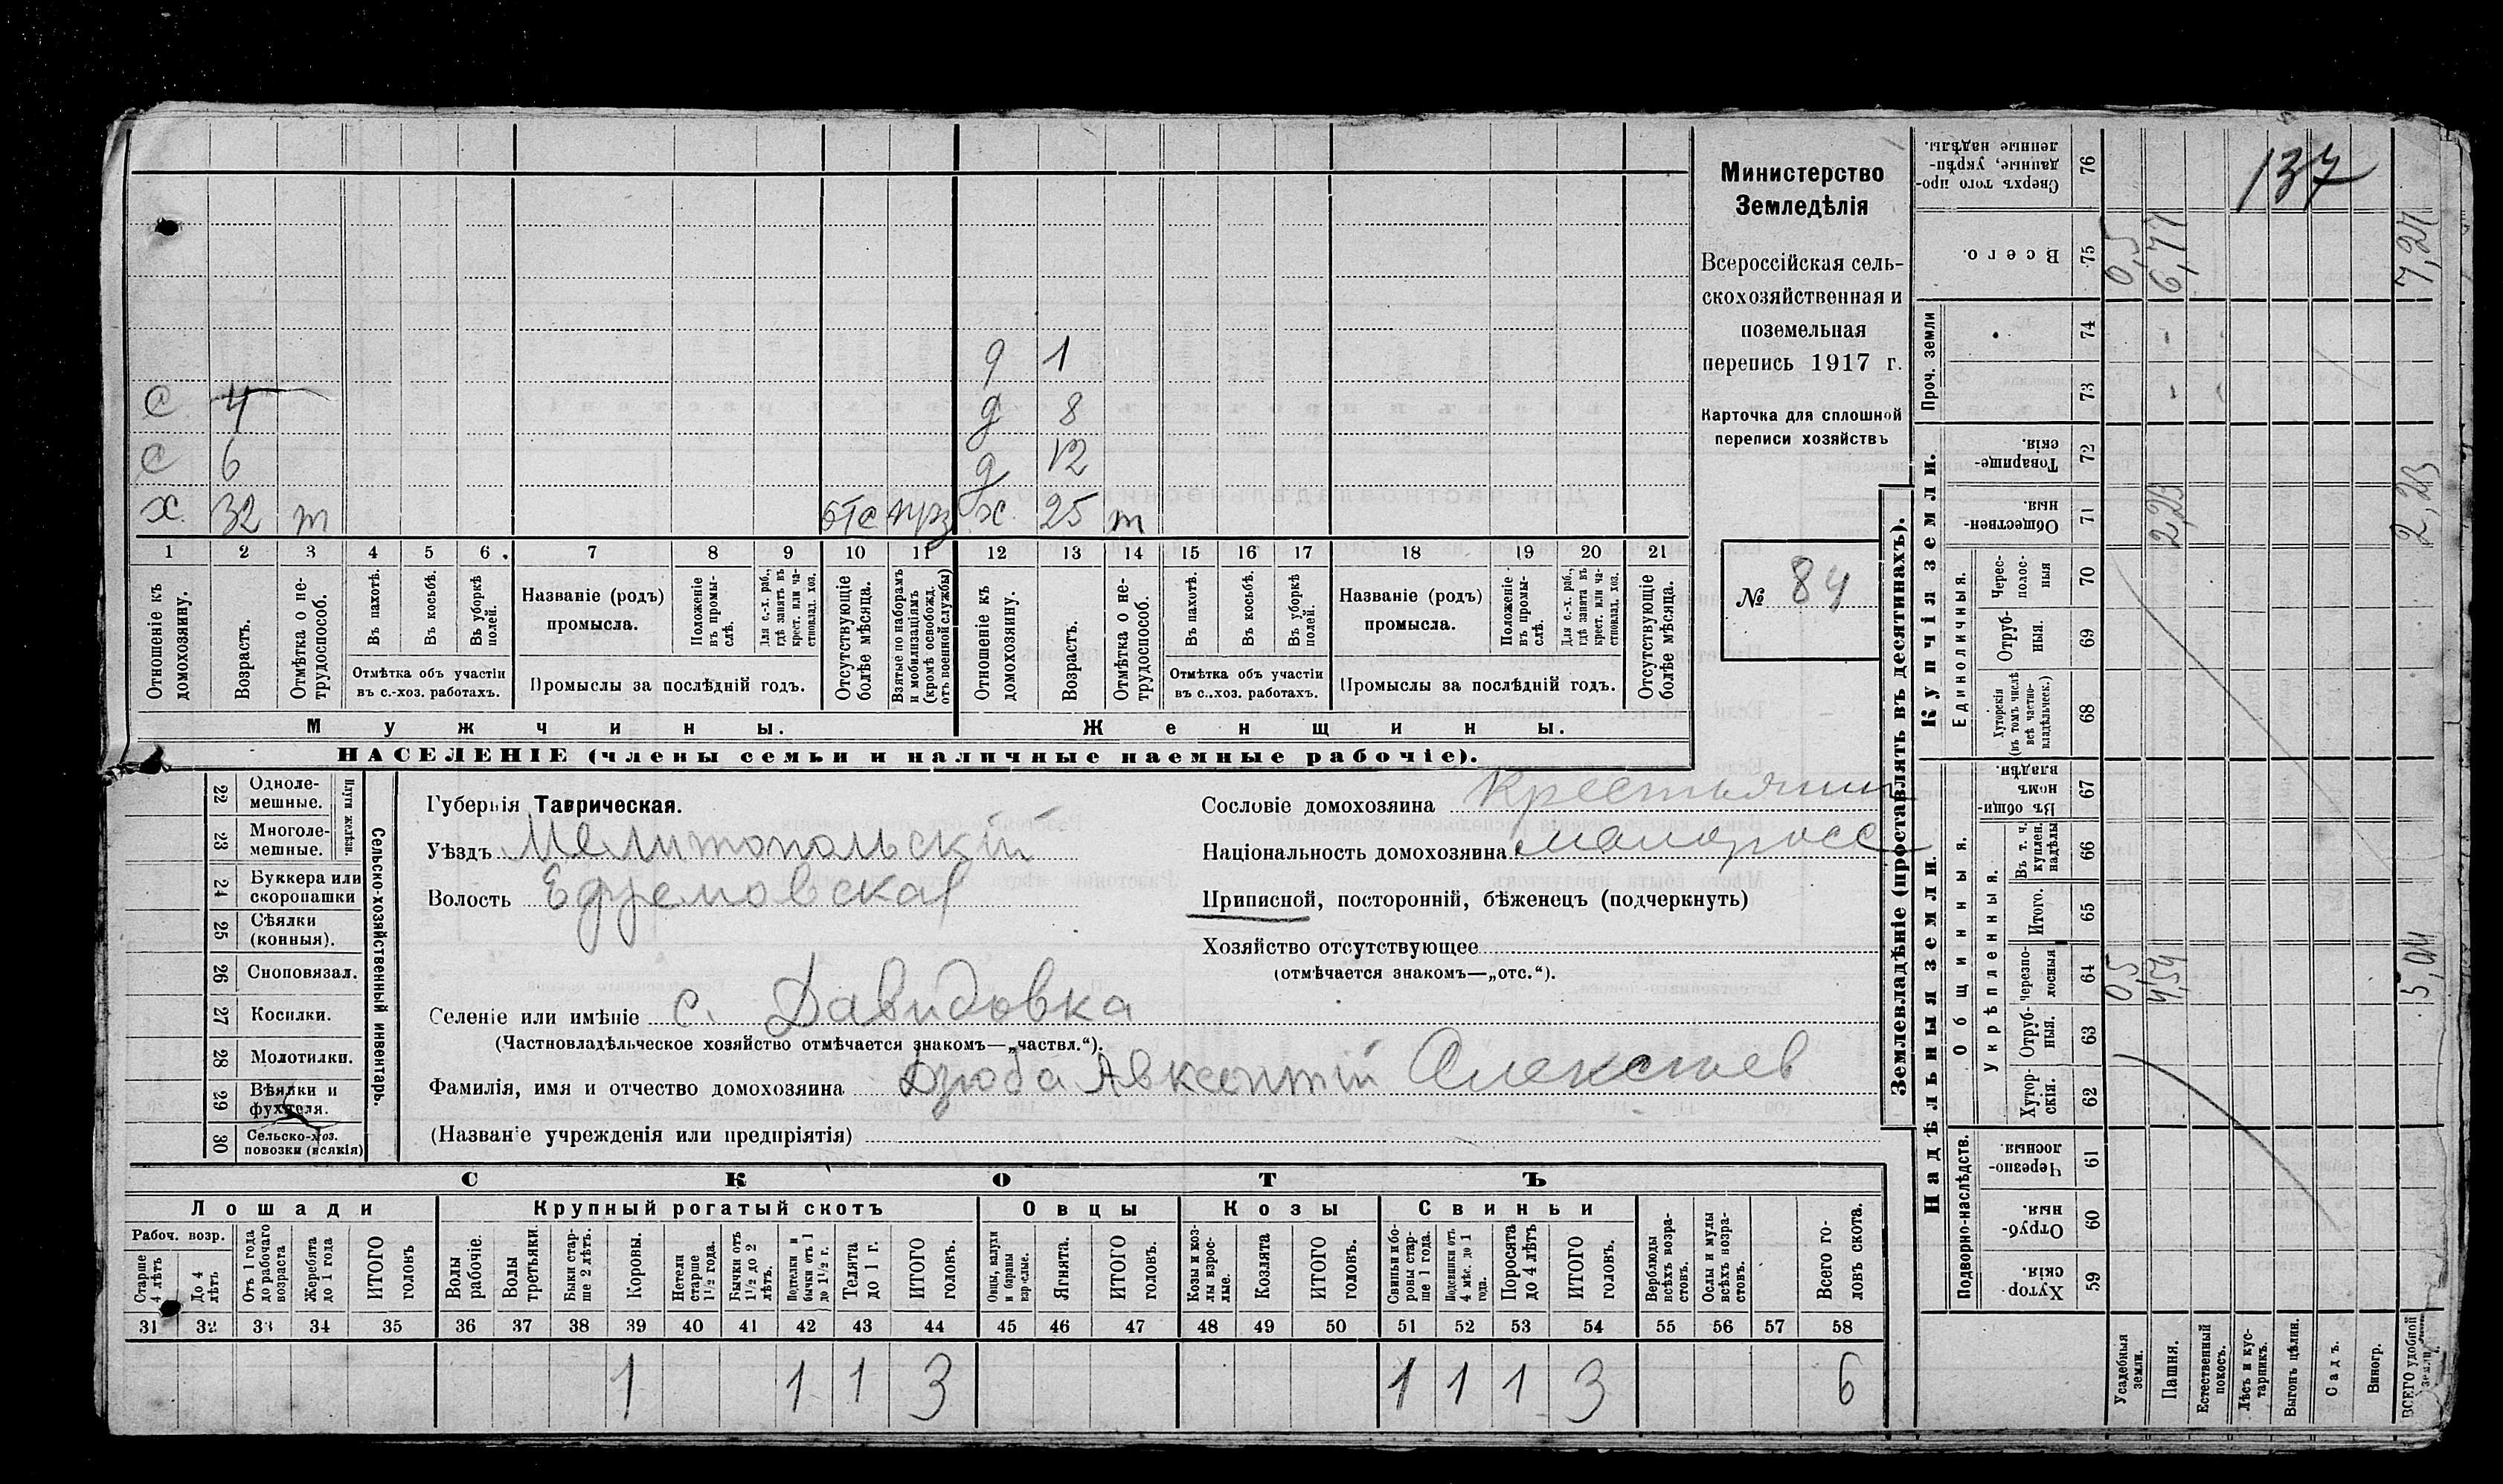 137
Министерство
Земледѣлія
Всероссійская сель-
скохозяйственная и
поземельная
перепись 1917 г.
Карточка для сплошной
переписи хозяйствъ
№ 84
д 1
с 4 д 8
с 6 д 12
х 32 т отс прз х 25 т
1 2 3 4 5 6 7 8 9 10 11 12 13 14 15 16 17 18 19 20 21
Отношеніе къ домохозяину.
Возрастъ.
Отмѣтка о не-трудоспособ.
Въ пахотѣ.
Въ косьбѣ.
Въ уборкѣ полей.
Отмѣтка объ участіи
въ с.-хоз. работахъ.
Названіе (родъ)
промысла.
Положеніе въ промы-слѣ.
Для с.-х. раб., гдѣ занятъ въ крест. или ча-стновлад. хоз.
Промыслы за послѣдній годъ.
Отсутствующіе болѣе мѣсяца.
Взятые по наборамъ и мобилизаціямъ (кромѣ освобожд. отъ военной службы)
Отношеніе къ домохозяину.
Возрастъ.
Отмѣтка о не-трудоспособ.
Въ пахотѣ.
Въ косьбѣ.
Въ уборкѣ полей.
Отмѣтка объ участіи
въ с.-хоз. работахъ.
Названіе (родъ)
промысла.
Положеніе въ промы-слѣ.
Для с.-х. раб., гдѣ занята въ крест. или ча-стновлад. хоз.
Промыслы за послѣдній годъ.
Отсутствующіе болѣе мѣсяца.
Мужчины. Женщины.
НАСЕЛЕНІЕ (члены семьи и наличные наемные рабочіе).
22 Одноле-мешные.
23 Многоле-мешные.
Плуги желѣзн.
24 Буккера или скоропашки
25 Сѣялки (конныя).
26 Сноповязал.
27 Косилки.
28 Молотилки.
29 Вѣялки и фухтеля.
30 Сельско-хоз. повозки (всякія)
Сельско-хозяйственный инвентарь.
Губернія Таврическая.
Уѣздъ Мелитопольскій
Волость Ефремовская
Селеніе или имѣніе с. Давидовка
(Частновладѣльческое хозяйство отмѣчается знакомъ—„частвл.“).
Фамилія, имя и отчество домохозяина Дзюба Авксентій Алексѣев
(Названіе учрежденія или предпріятія)
Сословіе домохозяина крестьянин
Національность домохозяина малоросс
Приписной, посторонній, бѣженецъ (подчеркнуть)
Хозяйство отсутствующее
(отмѣчается знакомъ—„отс.“).
СКОТЪ
Лошади Крупный рогатый скотъ Овцы Козы Свиньи
Рабоч. возр.
Старше 4 лѣтъ
До 4 лѣтъ
Отъ 1 года до рабочаго возраста
Жеребята до 1 года
ИТОГО головъ
Волы рабочіе.
Волы третьяки.
Быки стар-ше 2 лѣтъ.
Коровы.
Нетели старше 1½ года.
Бычки отъ 1½ до 2 лѣтъ.
Подтелки и бычки отъ 1 до 1½ г.
Телята до 1 г.
ИТОГО головъ.
Овцы, валухи и бараны взрослые.
Ягнята.
ИТОГО головъ.
Козы и коз-лы взрос-лые.
Козлята
ИТОГО головъ.
Свиньи и бо-ровы стар-ше 1 года.
Подсвинки отъ 4 мѣс. до 1 года.
Поросята до 4 лѣтъ
ИТОГО головъ.
Верблюды всѣхъ возра-стовъ.
Ослы и мулы всѣхъ возра-стовъ.
Всего го-ловъ скота.
31 32 33 34 35 36 37 38 39 40 41 42 43 44 45 46 47 48 49 50 51 52 53 54 55 56 57 58
1 1 1 3 1 1 1 3 6
Землевладѣніе (проставлять въ десятинахъ).
Надѣльныя земли. Купчія земли. Проч. земли
Подворно-наслѣдств. Общинныя. Укрѣпленныя. Единоличныя.
Сверхъ того про-данные, укрѣп-ленные надѣлы. 76
Всего. 75 0,5 6,77 7,27
74
73
Товарище-скія. 72
Обществен-ныя. 71 2,23 2,23
Черес-полос-ныя 70
Отруб-ныя. 69
Хуторскія (въ томъ числѣ всѣ частно-владѣльческ.) 68
Въ общи-номъ владѣн. 67
Въ т. ч. куплен. надѣлы 66
Итого. 65
Черезпо-лосныя 64 0,5 4,54 5,04
Отруб-ныя. 63
Хутор-скія. 62
Черезпо-лосныя 61
Отруб-ныя. 60
Хутор-скія. 59
Усадебныя земли.
Пашня.
Естественный покосъ.
Лѣсъ и кус-тарникъ.
Выгонъ цѣлин.
Садъ.
Виногр.
ВСЕГО удобной земли.